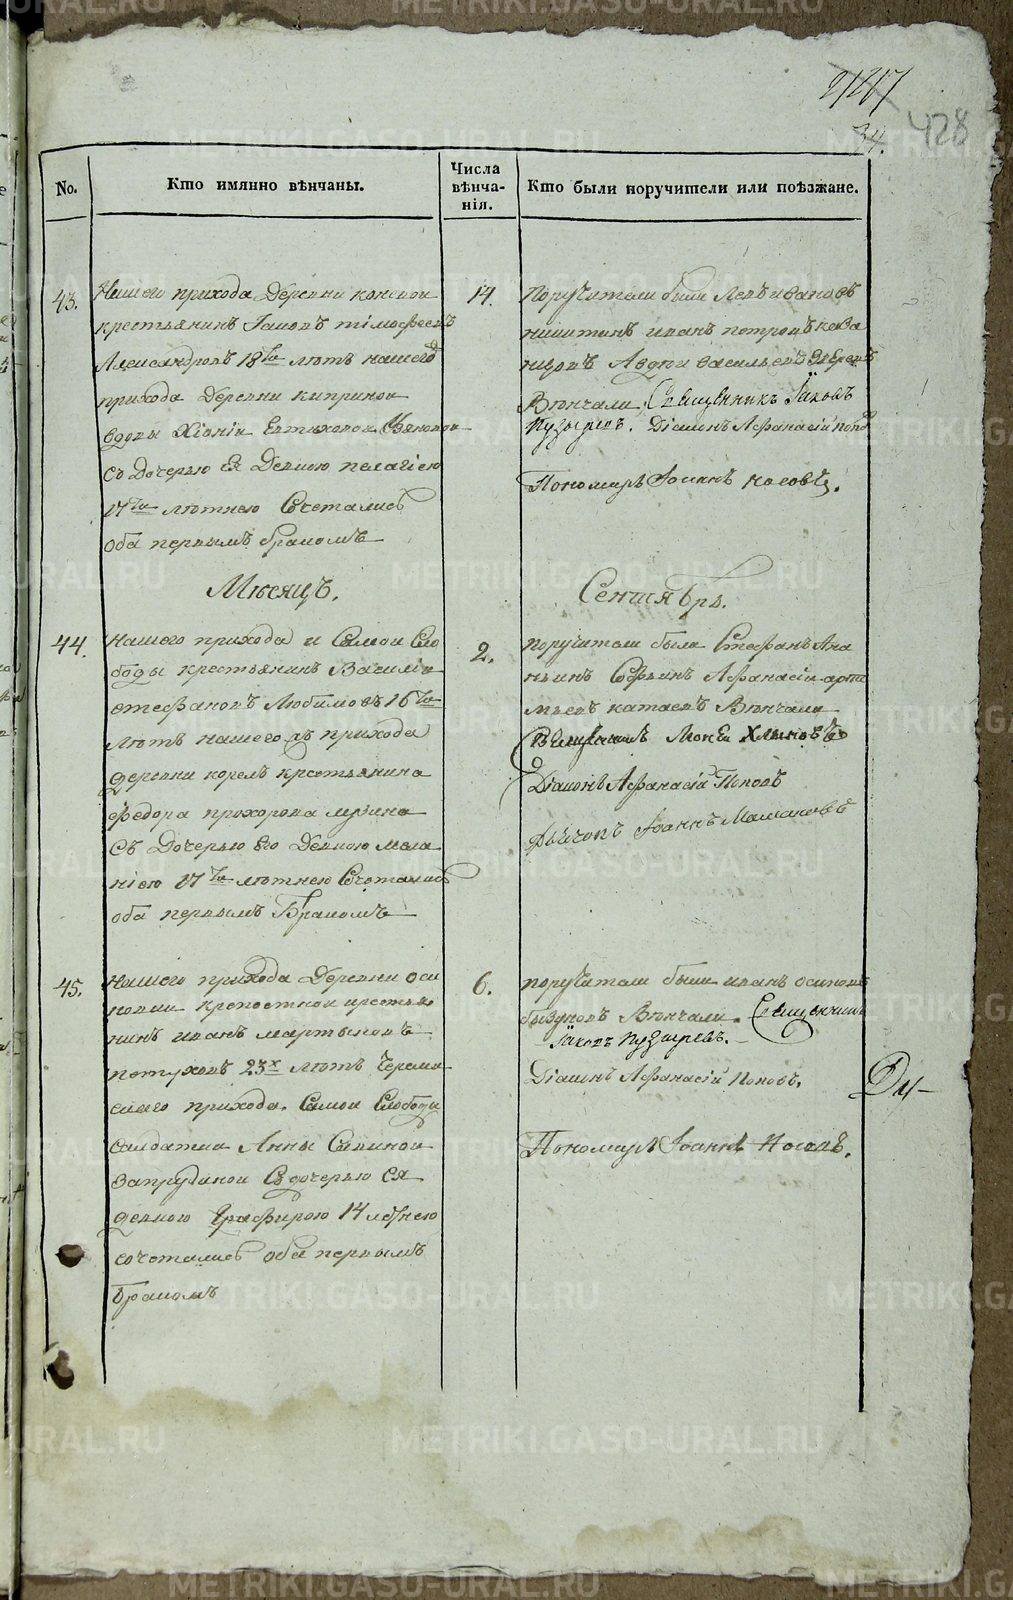 34. 428
No.
Кто имянно вѣнчаны.
Числа вѣнча-
нія.
Кто были поручители или поѣзжане.
43.
Нашего прихода Деревни
крестьянинъ Iаковъ тiмофеевъ
Александровъ 18ти лѣтъ нашего
прихода Деревни киприной
вдовы Хiонiи Евтиховой
съ Дочерью Ея Девкою пелагiею
17ти лѣтнею Сочетались
оба первымъ бракомъ
14.
Поручители были Левъ ивановъ
никитинъ иванъ петровъ
Авдѣи васильевъ
Вѣнчали Священникъ Iаковъ
Пузыревъ. Дiаконъ Афанасiй попо
Пономарь Iоаннъ Носовъ.
Мѣсяцъ.
Сентябрь.
44.
Нашего прихода и Самой Сло
боды крестьянинъ Василiи
стефановъ Любимовъ 16ти
лѣтъ нашего жъ прихода
деревни корелъ крестьянина
федора прохорова
Съ Дочерью Его Девкою мела
нiею 17ти лѣтнею Сочетались
оба первымъ Бракомъ
2.
поручители были Стефанъ Ана
ньинъ Афанасiи арте
мьевъ катаевъ Вѣнчали
Священникъ Мокей Хлыновъ
Дiаконъ Афанасiй Поповъ
Дьячокъ Iоаннъ
45.
Нашего прихода Деревни оси
новки крепостной крестья
нинъ иванъ мартыновъ
петуховъ 23х лѣтъ
прихода Самой Слободы
Салдатки Анны Савиной
Запрудиной Съ дочерью Ея
девкою Глафирою 14 лѣтнею
сочетались оба первымъ
Бракомъ
6.
поручители были иванъ осиповъ
Вѣнчали Священникъ
Iаковъ Пузыревъ.
Дiаконъ Афанасiй Поповъ.
Пономарь Iоаннъ Носовъ.
METRIKI.GASO-URAL.RU